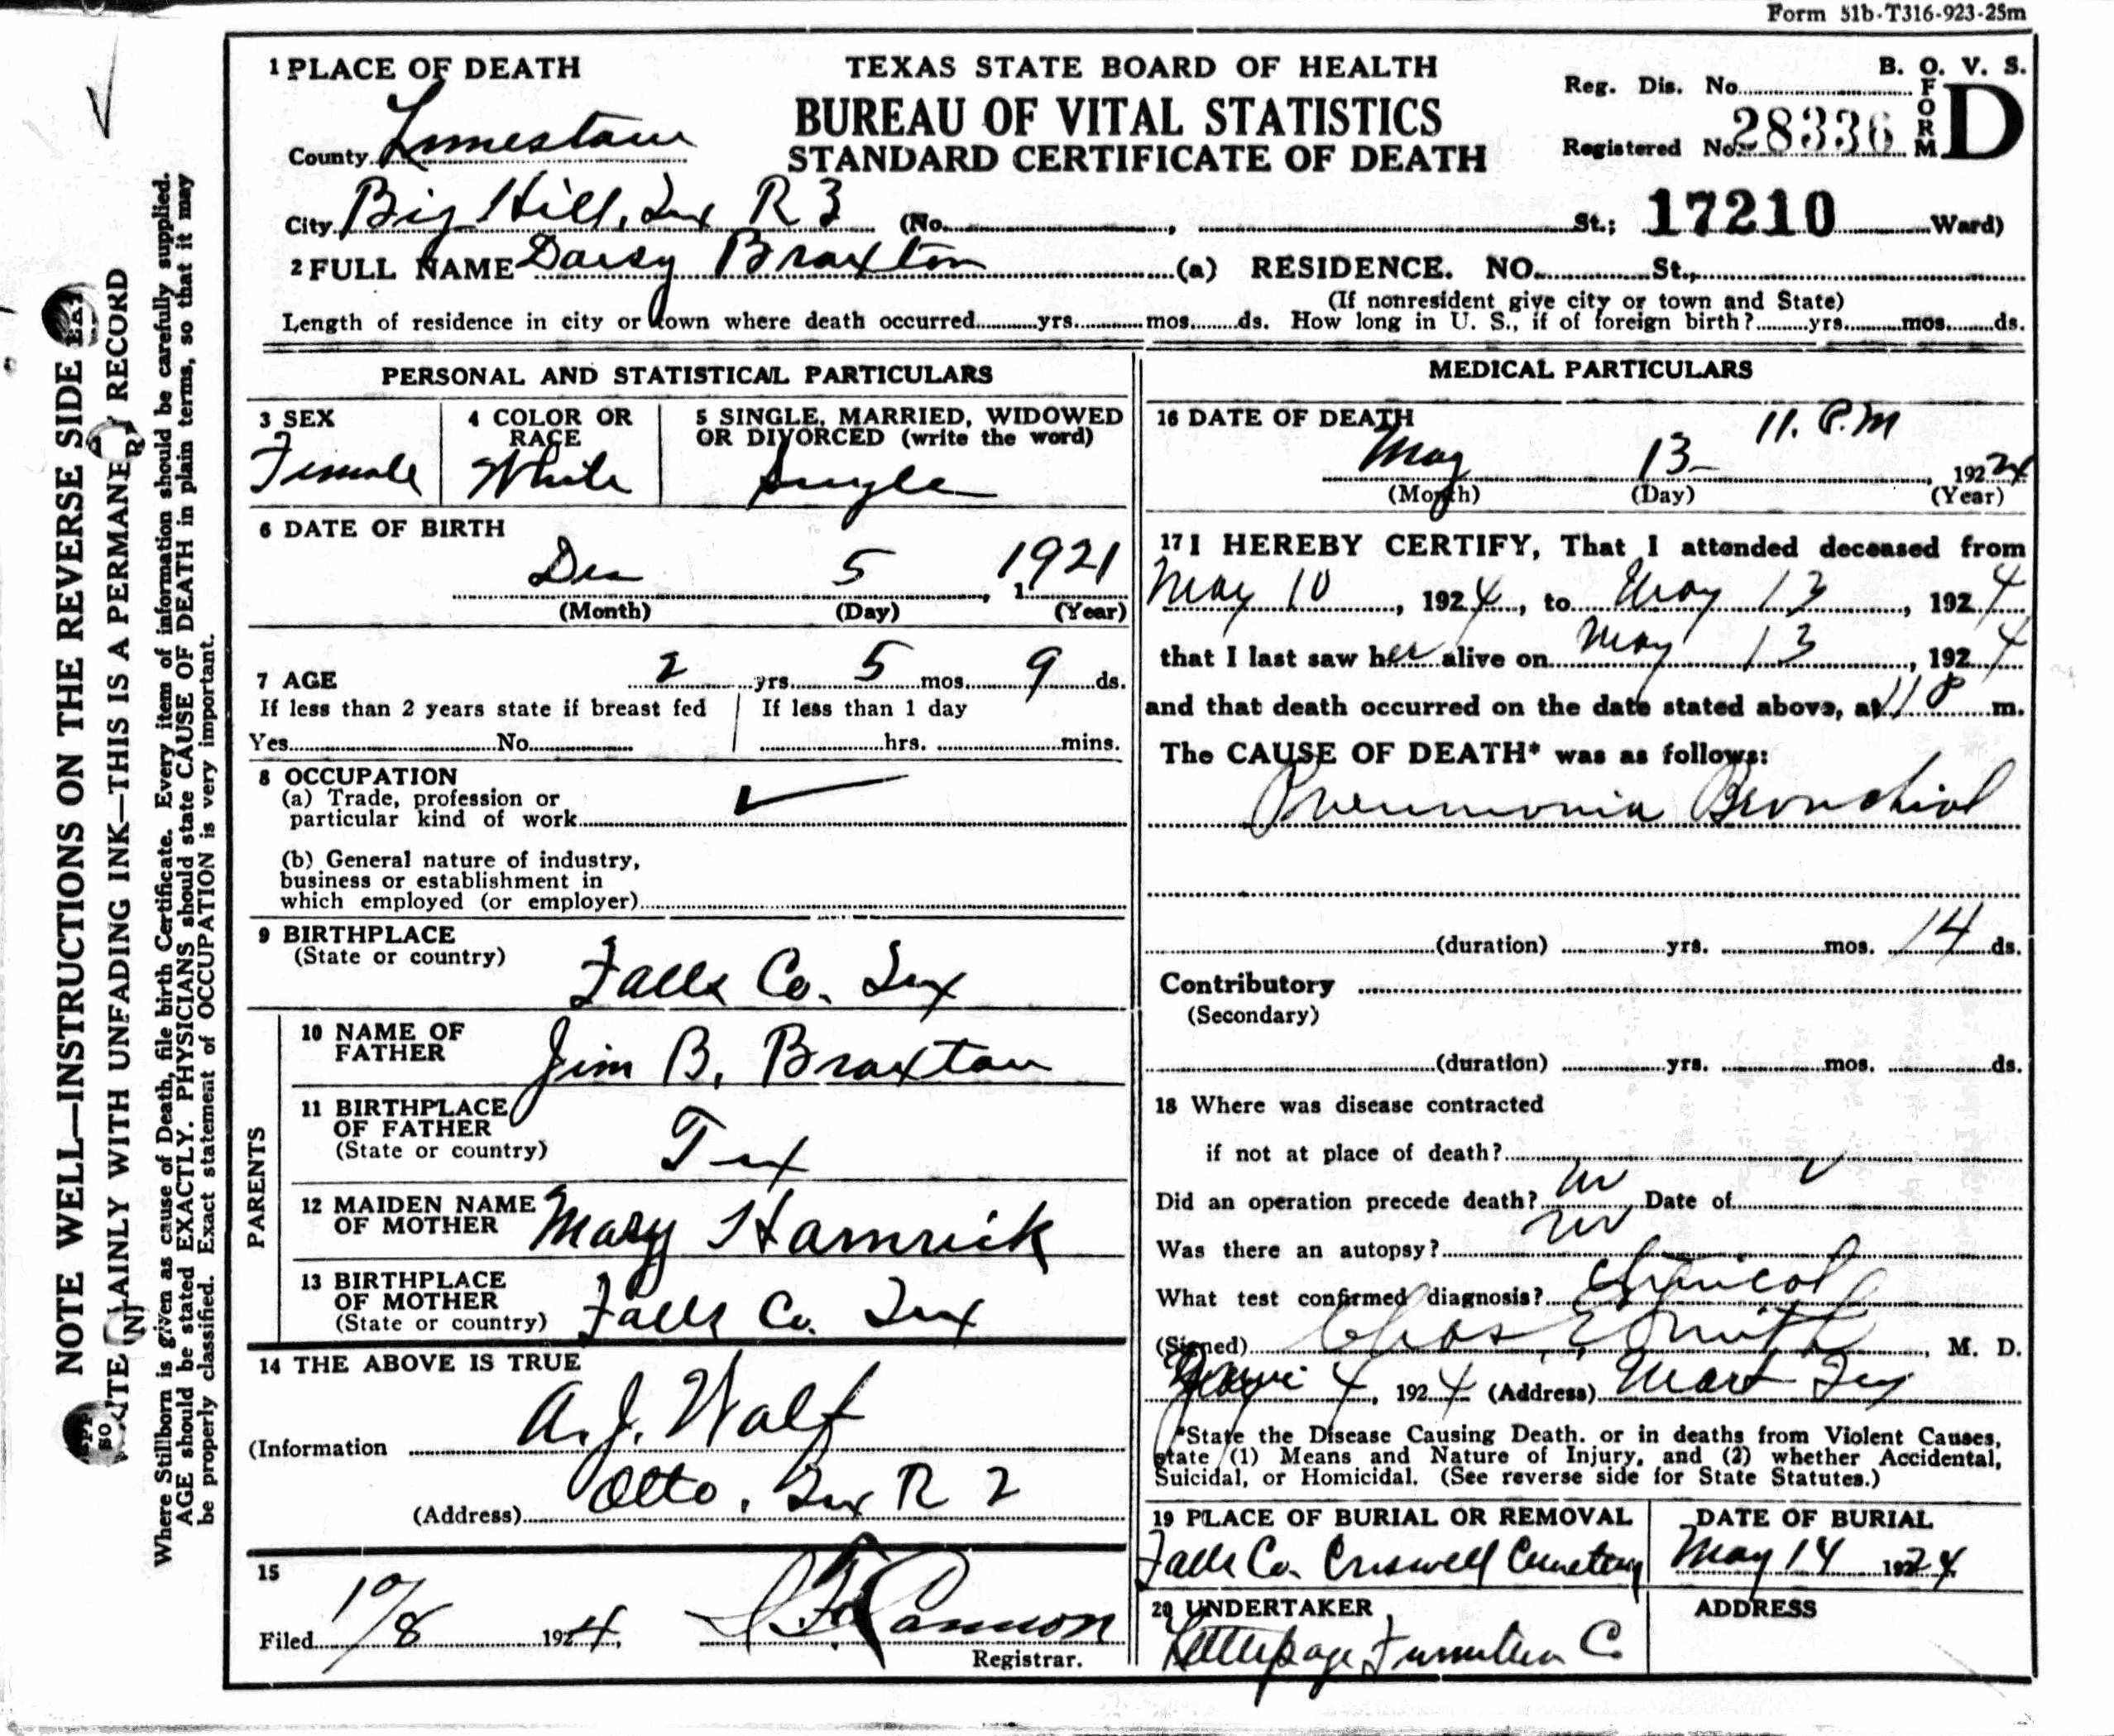 Form 51b-T316-923-25m
1 PLACE OF DEATH
TEXAS STATE BOARD OF HEALTH
BUREAU OF VITAL STATISTICS
STANDARD CERTIFICATE OF DEATH
B. O. V. S.
FORM D
Reg. Dis. No.
Registered No. 28336
County Limestone
City Big Hill, Tex R 3 (No. , St.; 17210 Ward)
2 FULL NAME Daisy Braxton (a) RESIDENCE. NO. St.,
(If nonresident give city or town and State)
Length of residence in city or town where death occurred yrs. mos. ds. How long in U. S., if of foreign birth? yrs. mos. ds.
PERSONAL AND STATISTICAL PARTICULARS
3 SEX
Female
4 COLOR OR RACE
White
5 SINGLE, MARRIED, WIDOWED
OR DIVORCED (write the word)
Single
6 DATE OF BIRTH
Dec 5, 1921
(Month) (Day) (Year)
7 AGE 2 yrs. 5 mos. 9 ds.
If less than 2 years state if breast fed
Yes No
If less than 1 day
hrs. mins.
8 OCCUPATION
(a) Trade, profession or
particular kind of work
(b) General nature of industry,
business or establishment in
which employed (or employer)
9 BIRTHPLACE
(State or country) Falls Co. Tex
PARENTS
10 NAME OF
FATHER Jim B. Braxton
11 BIRTHPLACE
OF FATHER
(State or country) Tex
12 MAIDEN NAME
OF MOTHER Mary Hamrick
13 BIRTHPLACE
OF MOTHER
(State or country) Falls Co. Tex
14 THE ABOVE IS TRUE
(Information A. J. Walf
(Address) Otto, Tex R 2
15
Filed 10/8 1924, Cannon
Registrar.
MEDICAL PARTICULARS
16 DATE OF DEATH
11. P.M
May 13 , 1924
(Month) (Day) (Year)
17 I HEREBY CERTIFY, That I attended deceased from
May 10, 1924, to May 13, 1924
that I last saw her alive on May 13, 1924
and that death occurred on the date stated above, at 11 P m.
The CAUSE OF DEATH* was as follows:
Pneumonia Bronchial
(duration) yrs. mos. 14 ds.
Contributory
(Secondary)
(duration) yrs. mos. ds.
18 Where was disease contracted
if not at place of death?
Did an operation precede death? no Date of
Was there an autopsy? no
What test confirmed diagnosis? Clinical
(Signed) Chas. E Smith, M. D.
June 4, 1924 (Address) Mart Tex
*State the Disease Causing Death, or in deaths from Violent Causes,
state (1) Means and Nature of Injury, and (2) whether Accidental,
Suicidal, or Homicidal. (See reverse side for State Statutes.)
19 PLACE OF BURIAL OR REMOVAL
Falls Co. Criswell Cemetery
DATE OF BURIAL
May 14 1924
20 UNDERTAKER
Furniture C.
ADDRESS
NOTE WELL—INSTRUCTIONS ON THE REVERSE SIDE
PLAINLY WITH UNFADING INK—THIS IS A PERMANENT RECORD
Where Stillborn is given as cause of Death, file birth Certificate. Every item of information should be carefully supplied.
AGE should be stated EXACTLY. PHYSICIANS should state CAUSE OF DEATH in plain terms, so that it may
be properly classified. Exact statement of OCCUPATION is very important.